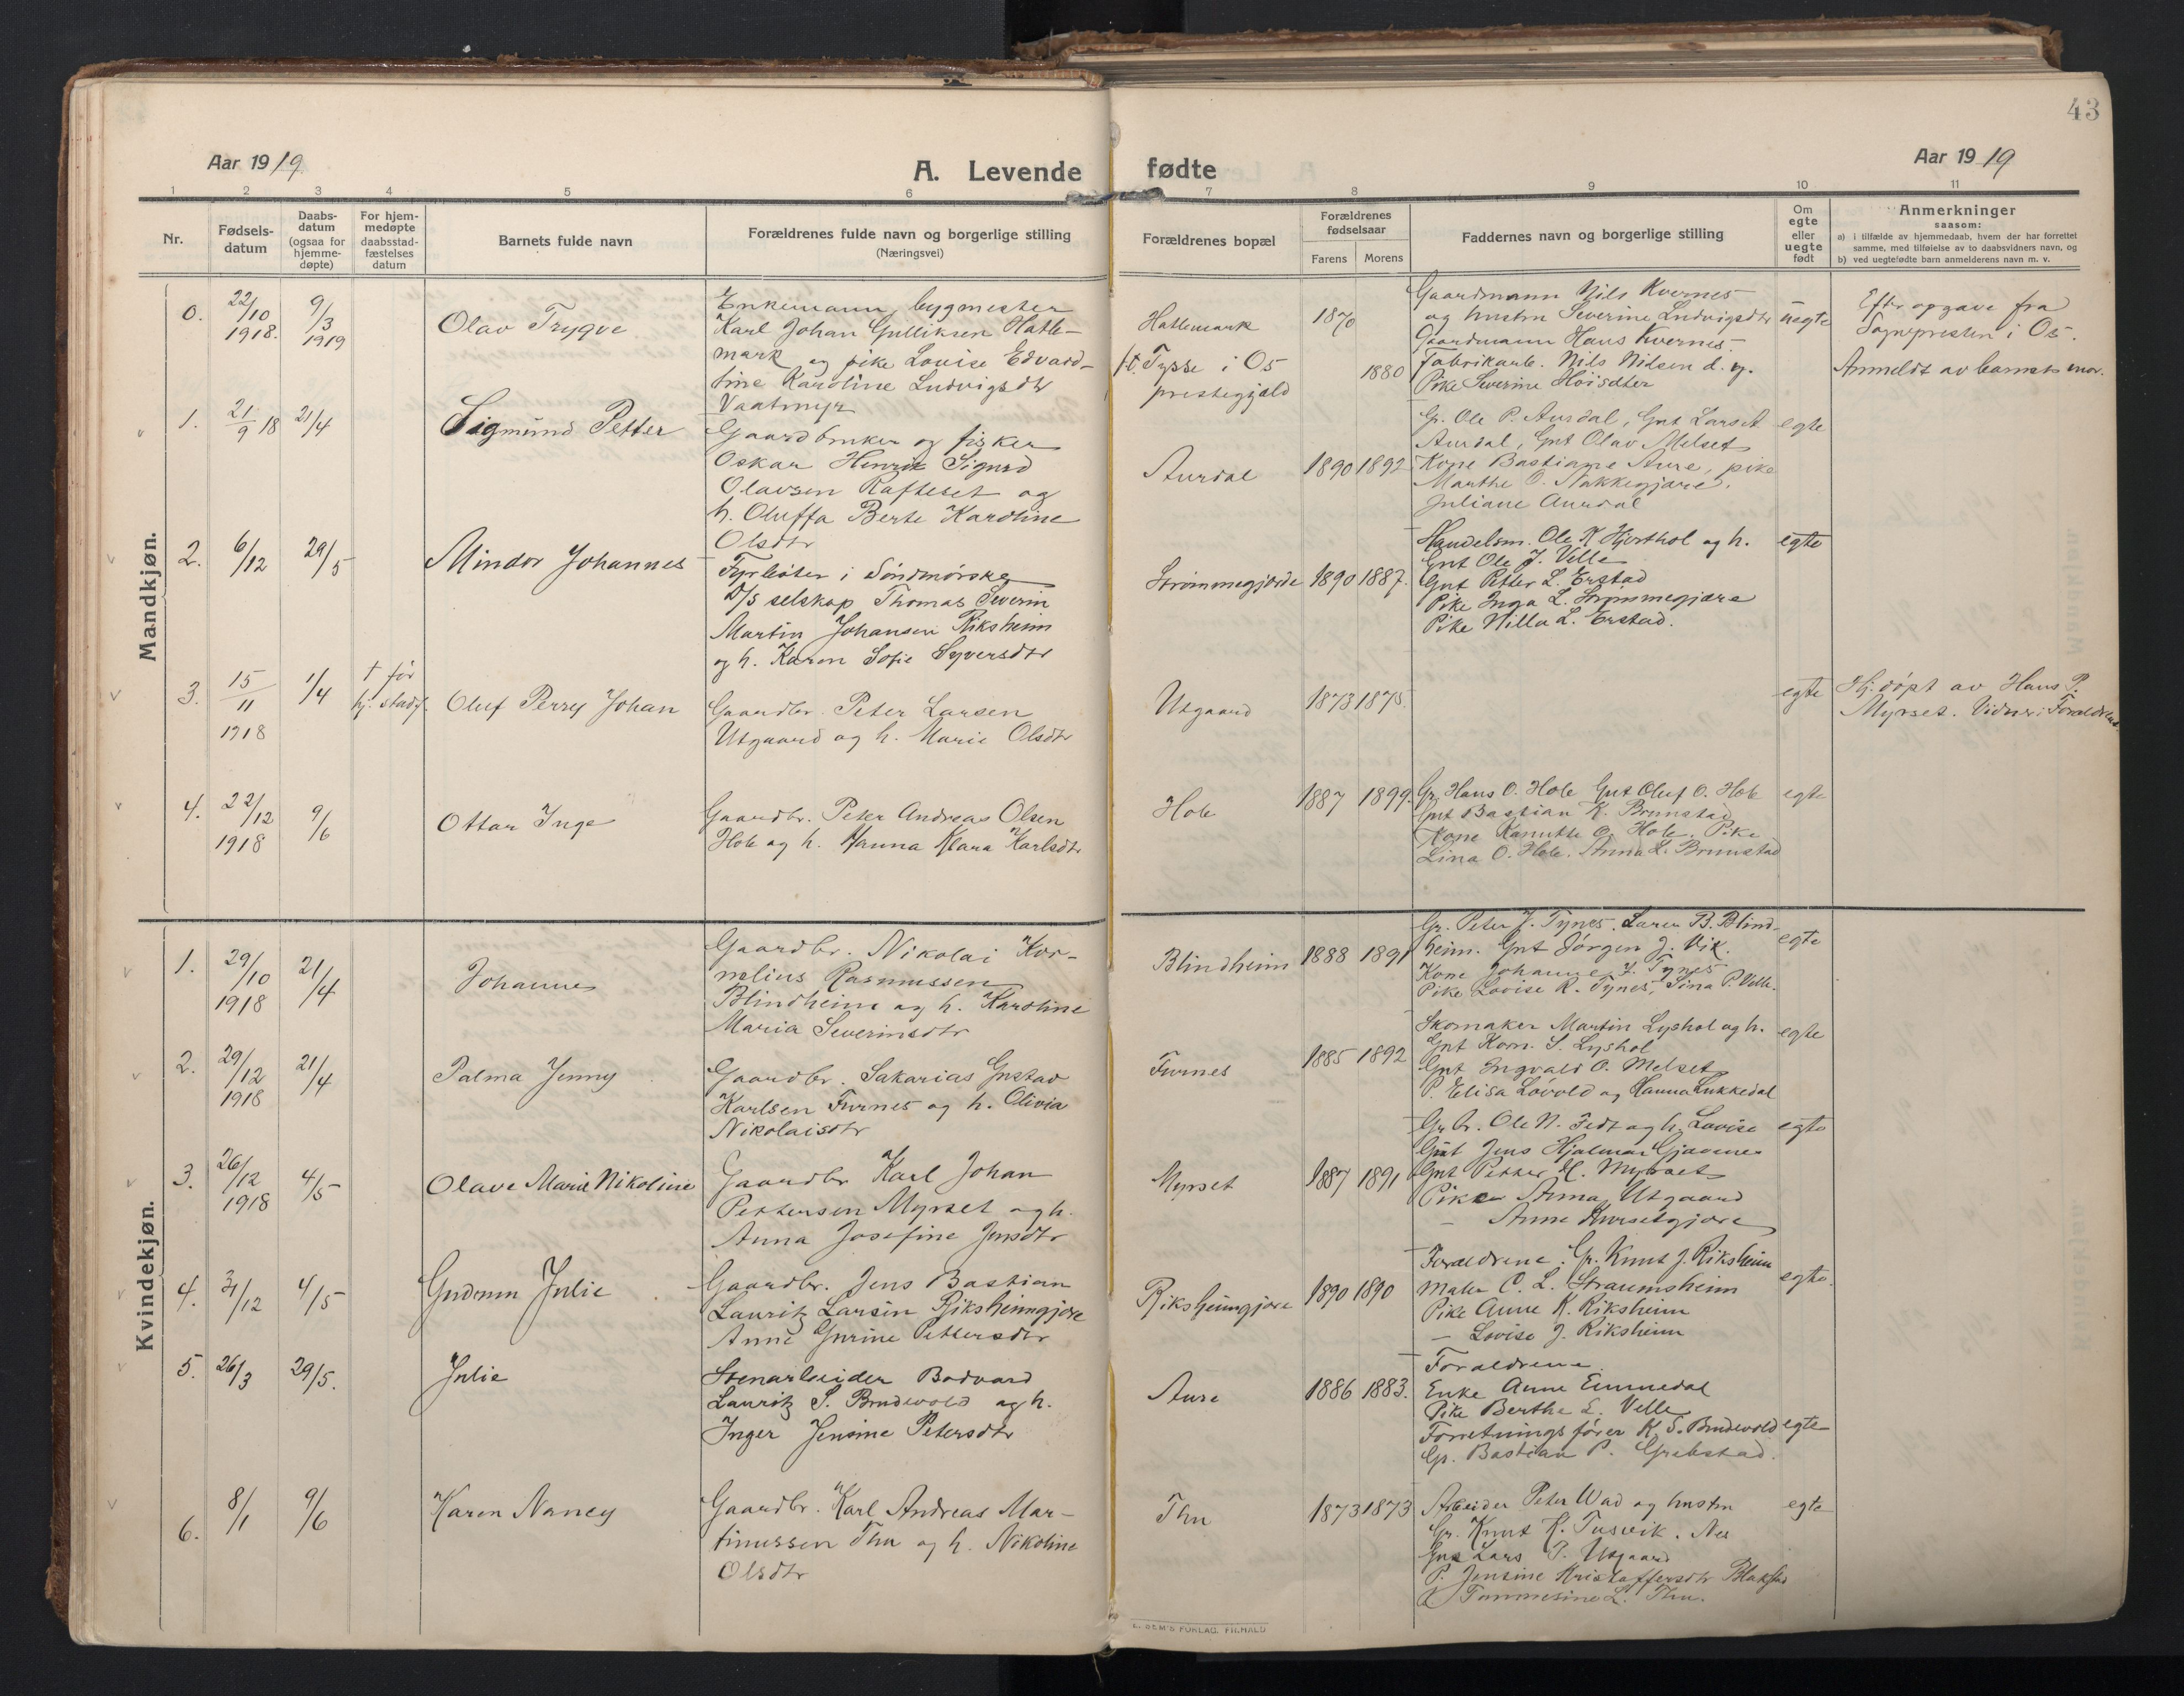 43
Aar 1919.
A. Levende fødte
Aar 1919
1 2 3 4 5 6 7 8 9 10 11
Nr.
Fødsels-
datum
Daabs-
datum
(ogsaa for
hjemme-
døpte)
For hjem-
medøpte
daabsstad-
fæstelses
datum
Barnets fulde navn
Forældrenes fulde navn og borgerlige stilling
(Næringsvei)
Forældrenes bopæl
Forældrenes
fødselsaar
Farens Morens
Faddernes navn og borgerlige stilling
Om
egte
eller
uegte
født
Anmerkninger
saasom:
a) i tilfælde av hjemmedaab, hvem der har forrettet
samme, med tilføielse av to daabsvidners navn, og
b) ved uegtefødte barn anmelderens navn m. v.
Mandkjøn.
0. 22/10 1918. 9/3 1919
Olav Trygve
Enkemann, bygmester
Karl Johan Gulliksen Hatle-
mark og pike Lovise Edvard-
tine Karoline Ludvigsdtr
Vaatmyr
Hatlemark
ft. Tysse i Os
prestegjæld
1870
1880
Gaardmann Nils Kvernes
og hustru Severine Ludvigsdtr
Gaardmann Hans Kvernes.
Fabrikarb. Nils Nilsen d. y.
Pike Severine Høisdter
uegte
Efter opgave fra
Sognepresten i Os.
Anmeldt av barnets mor.
1. 21/9 18 21/4
Sigmund Petter
Gaardbruker og fisker
Oskar Henrik Sigurd
Olavsen Rafteset og
h. Oluffa Berte Karoline
Olsdtr
Aurdal
1890 1892
Gr. Ole P. Aurdal, Gut Lars A.
Aurdal, Gut Olav Melset
Kone Bastiane Aure, pike
Marthe O. Nakkegjære,
Juliane Aurdal
egte
2. 6/12 29/5
Mindor Johannes
Fyrbøter i Søndmørske
D/S selskap Thomas Severin
Martin Johansen Riksheim
og h. Karen Sofie Syversdtr
Strømmegjerde
1890 1887.
Handelsm. Ole K. Hjorthol og h.
Gut Ole J. Velle
Gut Petter L. Erstad
Pike Inga L. Strømmegjære
Pike Nilla L. Erstad.
egte
3. 15/11 1918 1/4
† før
hj. stadf.
Oluf Perry Johan
Gaardbr. Peter Larsen
Utgaard og h. Marie Olsdtr
Utgaard
1873 1875.
egte
Hj. døpt av Hans P.
Myrset. Vidner: Forældrene.
4. 22/12 1918 9/6
Ottar Inge
Gaardbr. Peter Andreas Olsen
Hole og h. Hanna Klara Karlsdtr
Hole
1887 1899.
Gr. Hans O. Hole Gut Oluf O. Hole
Gut Bastian K. Brunstad
Kone Kanutte O. Hole. Pike
Lina O. Hole. Anna L. Brunstad
egte
Kvindekjøn.
1. 29/10 1918 21/4
Johanne
Gaardbr. Nikolai Kor-
nelius Rasmussen
Blindheim og h. Karoline
Maria Severinsdtr
Blindheim
1888 1891
Gr. Peter J. Tynes. Laren B. Blind-
heim. Gut Jørgen J. Vik.
Kone Johanne J. Tynes
Pike Lovise R. Tynes, Sina P. Velle.
egte
2. 29/12 1918 21/4
Palma Jenny
Gaardbr. Sakarias Gustav
Karlsen Furnes og h. Olivia
Nikolaisdtr
Furnes
1885 1892
Skomaker Martin Lyshol og h.
Gut Korn. S. Lyshol
Gut Ingvald O. Melset
P. Elisa Løvold og Hanna Lukkedal
egte
3. 26/12 1918 4/5
Olave Marie Nikoline
Gaardbr Karl Johan
Pettersen Myrset og h.
Anna Josefine Jensdtr
Myrset
1887 1891
Gr br. Ole N. Fedt og h. Lovise
Gut Jens Hjalmar Gjævenes
Gut Petter H. Myrset
Pike Anna Utgaard
— Anne Kursetgjøre
egte
4. 31/12 4/5
Gudrun Julie
Gaardbr. Jens Bastian
Lauritz Larsen Riksheimgjøre
Anne Gurine Pettersdtr
Riksheimgjøre
1890 1890
Forældrene. Gr. Knut J. Riksheim
Maler C. L. Straumsheim
Pike Anne K. Riksheim
— Lovise J. Riksheim
egte.
5. 26/3 29/5.
Julie
Stenarbeider Bodvard
Lauritz S. Brudevold og h.
Inger Jensine Petersdtr
Aure
1886 1883.
Forældrene.
Enke Anne Emmedal
Pike Berthe L. Velle
Forretningsfører K. S. Brudevold
Gr. Bastian P. Grebstad.
egte
6. 8/1 9/6
Karen Nancy
Gaardbr. Karl Andreas Mar-
tinussen Thu og h. Nikoline
Olsdtr
Thu
1873 1873
Arbeider Peter Wad og hustru
Gr. Knut K. Tusvik.
Gut Lars P. Utgaard
P. Jensine Kristoffersdtr Blakstad
Tommesine L. Thu.
egte
E. SEM'S FORLAG, FR.HALD